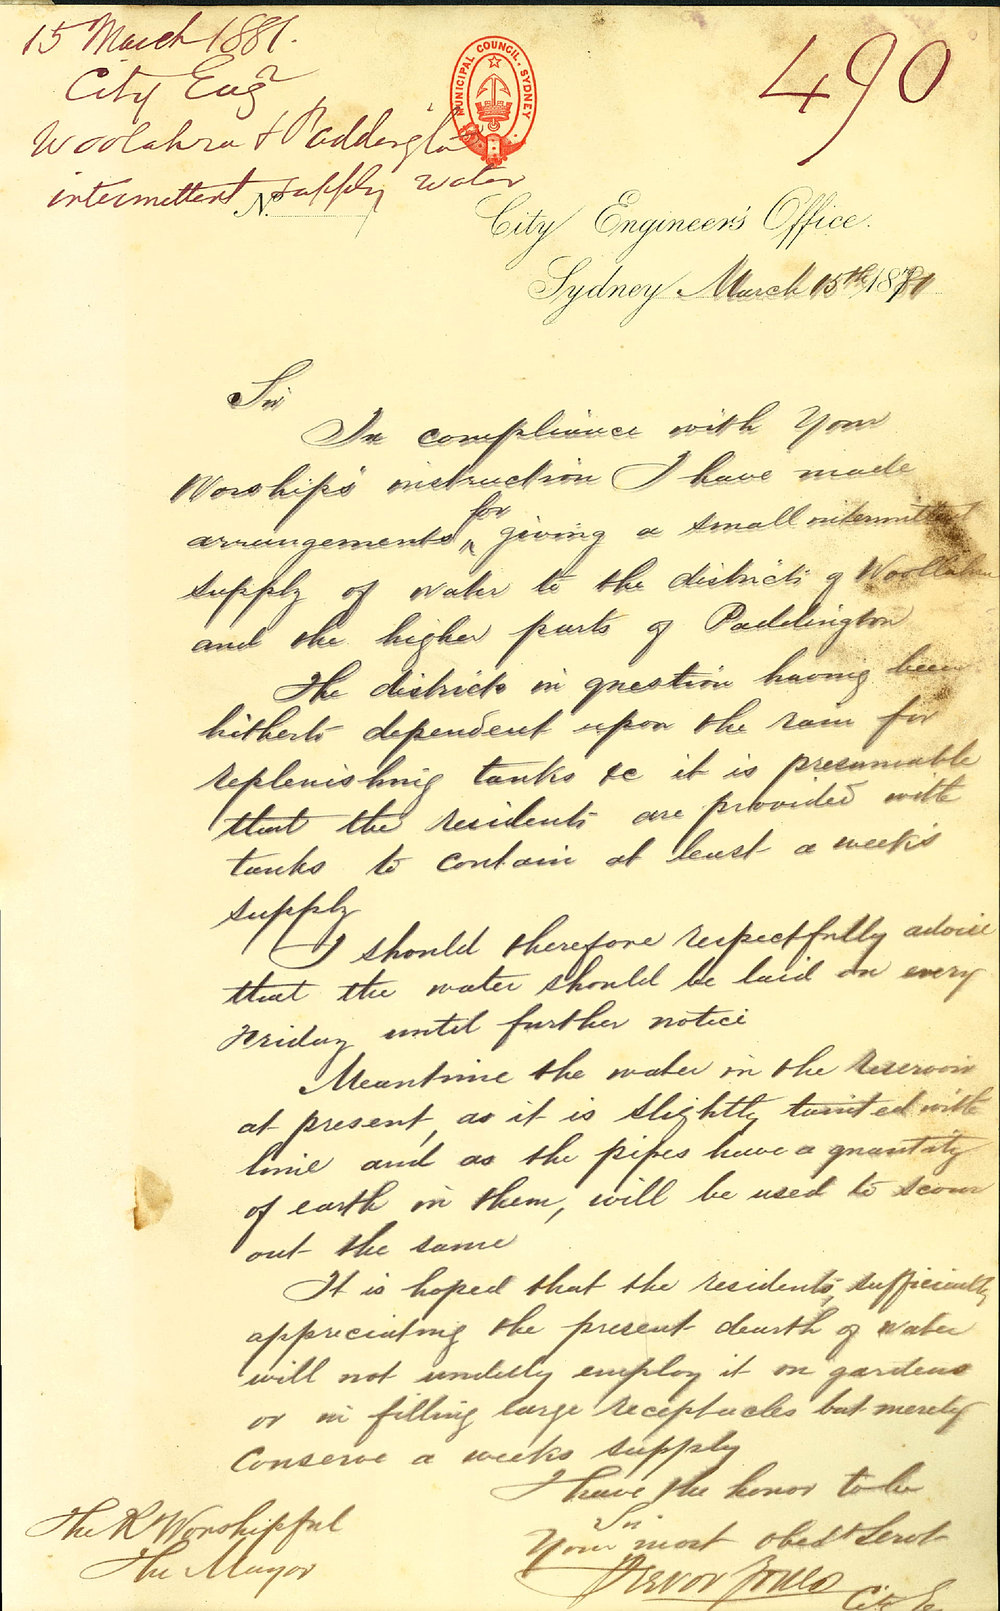 15 March 1881.
City Engr
Woolahra & Paddington
intermittent supply water
No.
MUNICIPAL COUNCIL. SYDNEY
490
City Engineer's Office.
Sydney March 15th 1881
Sir
In compliance with Your
Worship's instruction I have made
arrangements for giving a small intermittent
supply of water to the districts of Woollahra
and the higher parts of Paddington
The districts in question having been
hitherto dependent upon the rain for
replenishing tanks &c it is presumable
that the residents are provided with
tanks to contain at least a week's
supply
I should therefore respectfully advise
that the water should be laid on every
Friday until further notice
Meantime the water in the reservoir
at present, as it is slightly tainted with
lime and as the pipes have a quantity
of earth in them, will be used to scour
out the same
It is hoped that the residents, sufficiently
appreciating the present dearth of water
will not unduly employ it on gardens
or in filling large receptacles but merely
conserve a weeks supply
I have the honor to be
Sir
Your most obedt Servt
Trevor Jones
City E
The Rt Worshipful
The Mayor